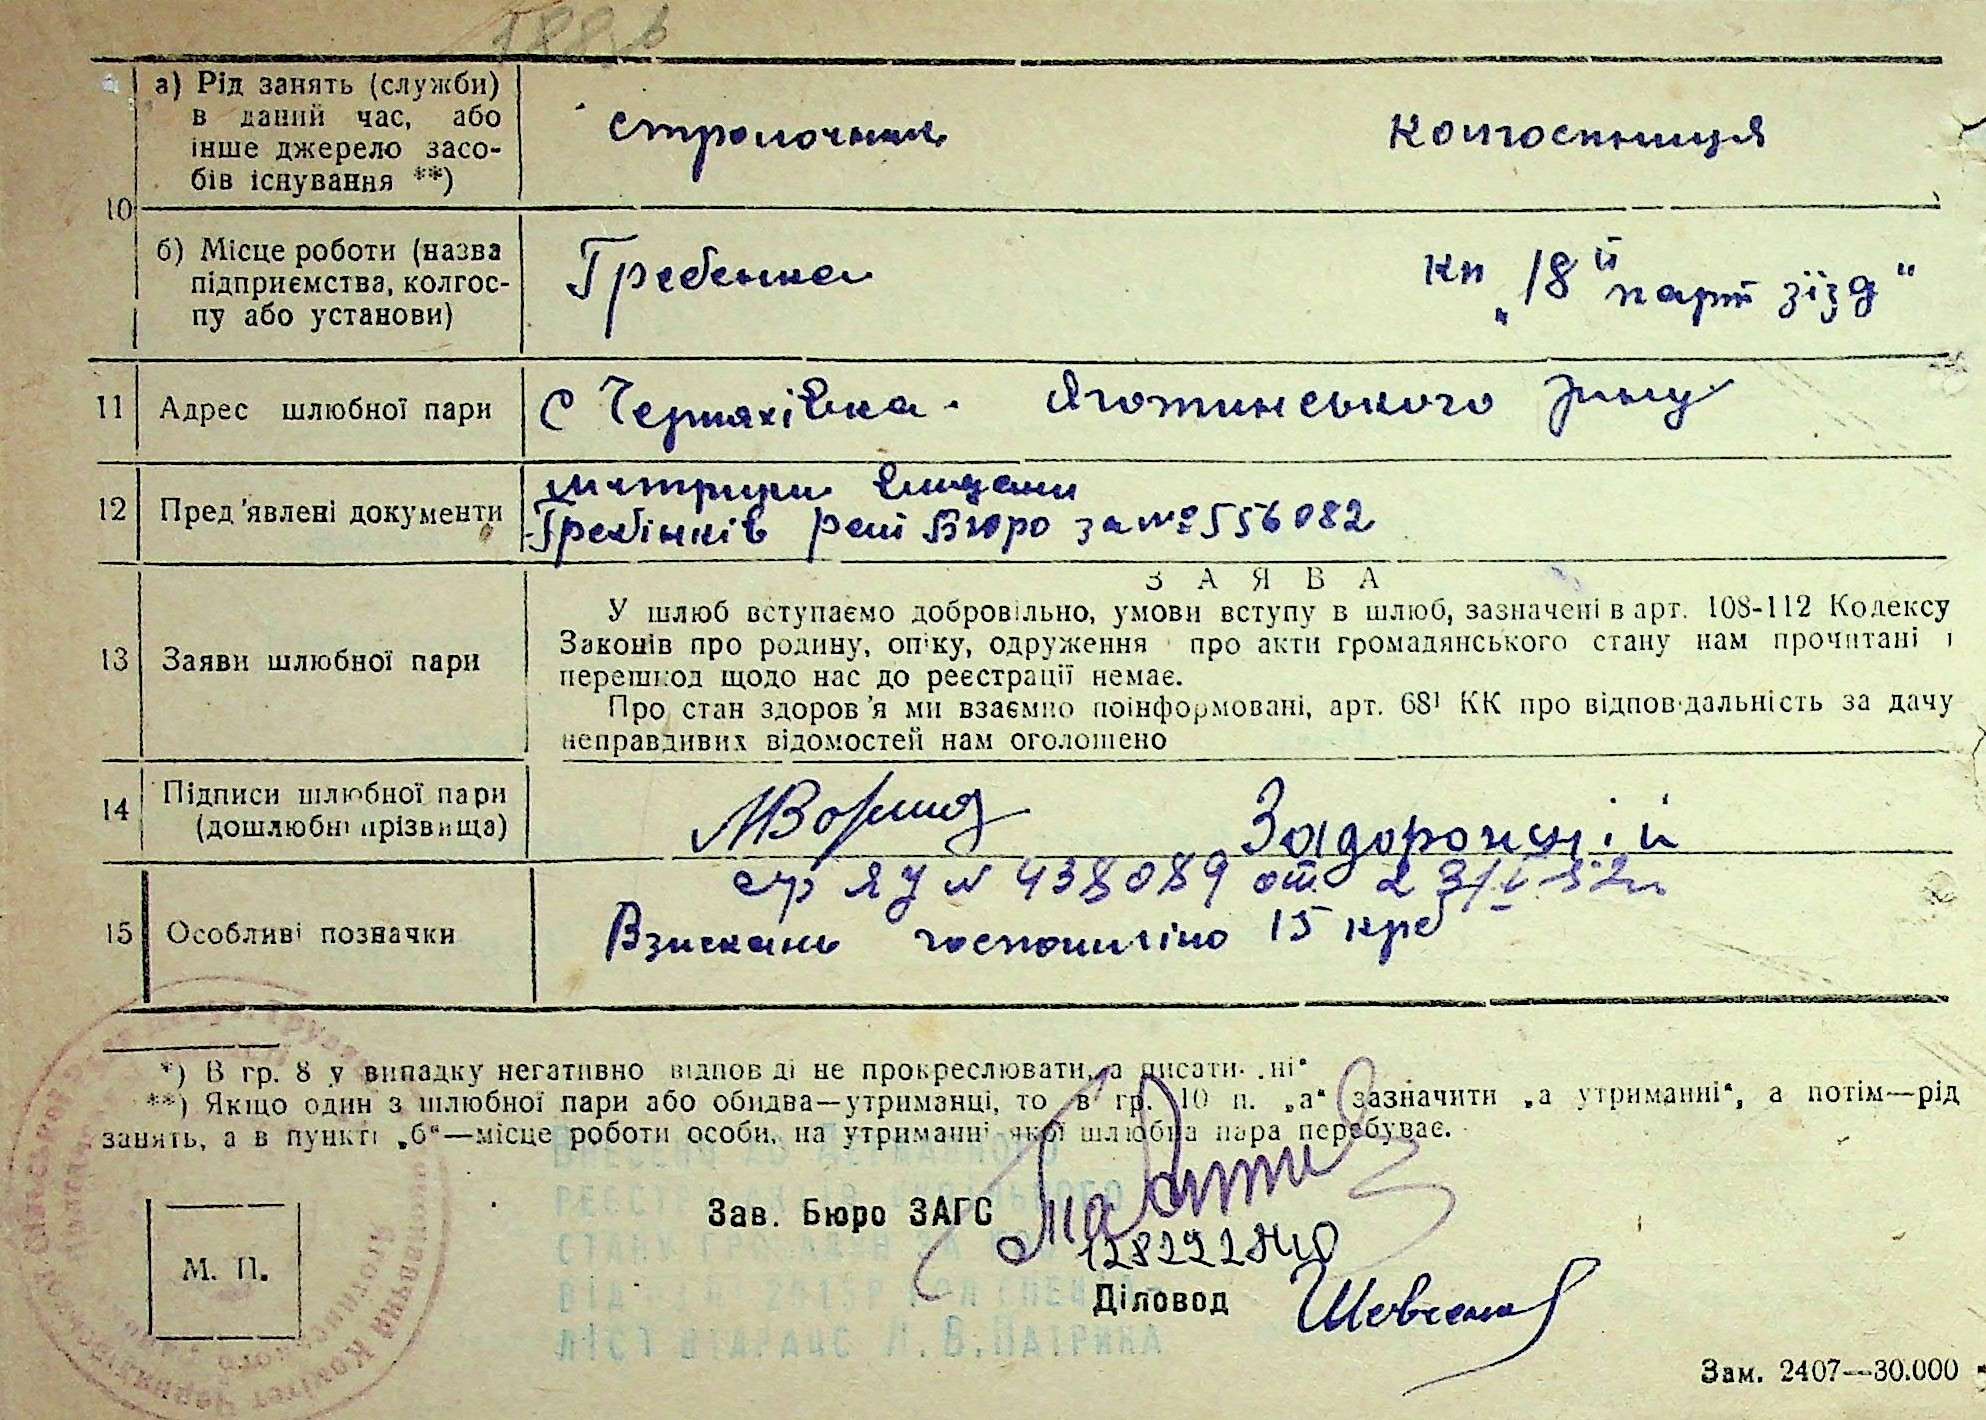 10
а) Рід занять (служби)
в даний час, або
інше джерело засо-
бів існування **)
стрілочник
колгоспниця
б) Місце роботи (назва
підприємства, колгос-
пу або установи)
Гребенка
кп „18й парт зїзд“
11 Адрес шлюбної пари
с Черняхівка. Яготинського р-ну
12 Пред'явлені документи
метрики видани
Гребінків бюро за № 556082
13 Заяви шлюбної пари
ЗАЯВА
У шлюб вступаємо добровільно, умови вступу в шлюб, зазначені в арт. 108-112 Кодексу
Законів про родину, опіку, одруження про акти громадянського стану нам прочитані і
перешкод щодо нас до реєстрації немає.
Про стан здоров'я ми взаємно поінформовані, арт. 68¹ КК про відповідальність за дачу
неправдивих відомостей нам оголошено
14 Підписи шлюбної пари
(дошлюбні прізвища)
Задорожній
15 Особливі позначки
ЯУ № 438089 от
Взискань 15 крб
*) В гр. 8 у випадку негативно відповіді не прокреслювати, а писати „ні“
**) Якщо один з шлюбної пари або обидва—утриманці, то в гр. 10 п. „а“ зазначити „а утриманні“, а потім—рід
занять, а в пункті „б“—місце роботи особи, на утриманні якої шлюбна пара перебуває.
Внесено до Державного
реєстру
стану громадян за
ліст відрацс Л. В. Патрика
М. П.
Зав. Бюро ЗАГС
Діловод
Шевченко
Зам. 2407—30.000